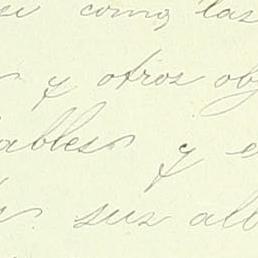 como las
y otros obj
ables y e
sus alb